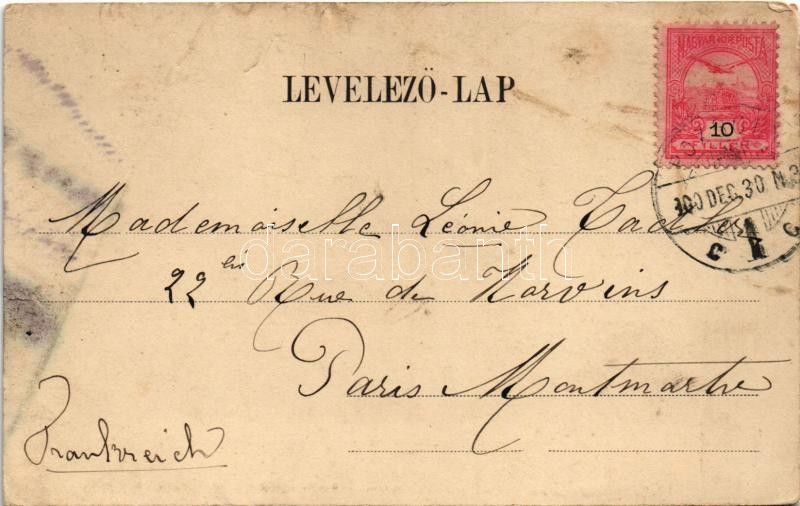 MAGYAR KIR. POSTA
10
FILLÉR
LEVELEZŐ-LAP
100 DEC. 30 N. 3
Mademoiselle Léonie
22 bis Rue de Norvins
Paris Montmartre
Frankreich
darabanth